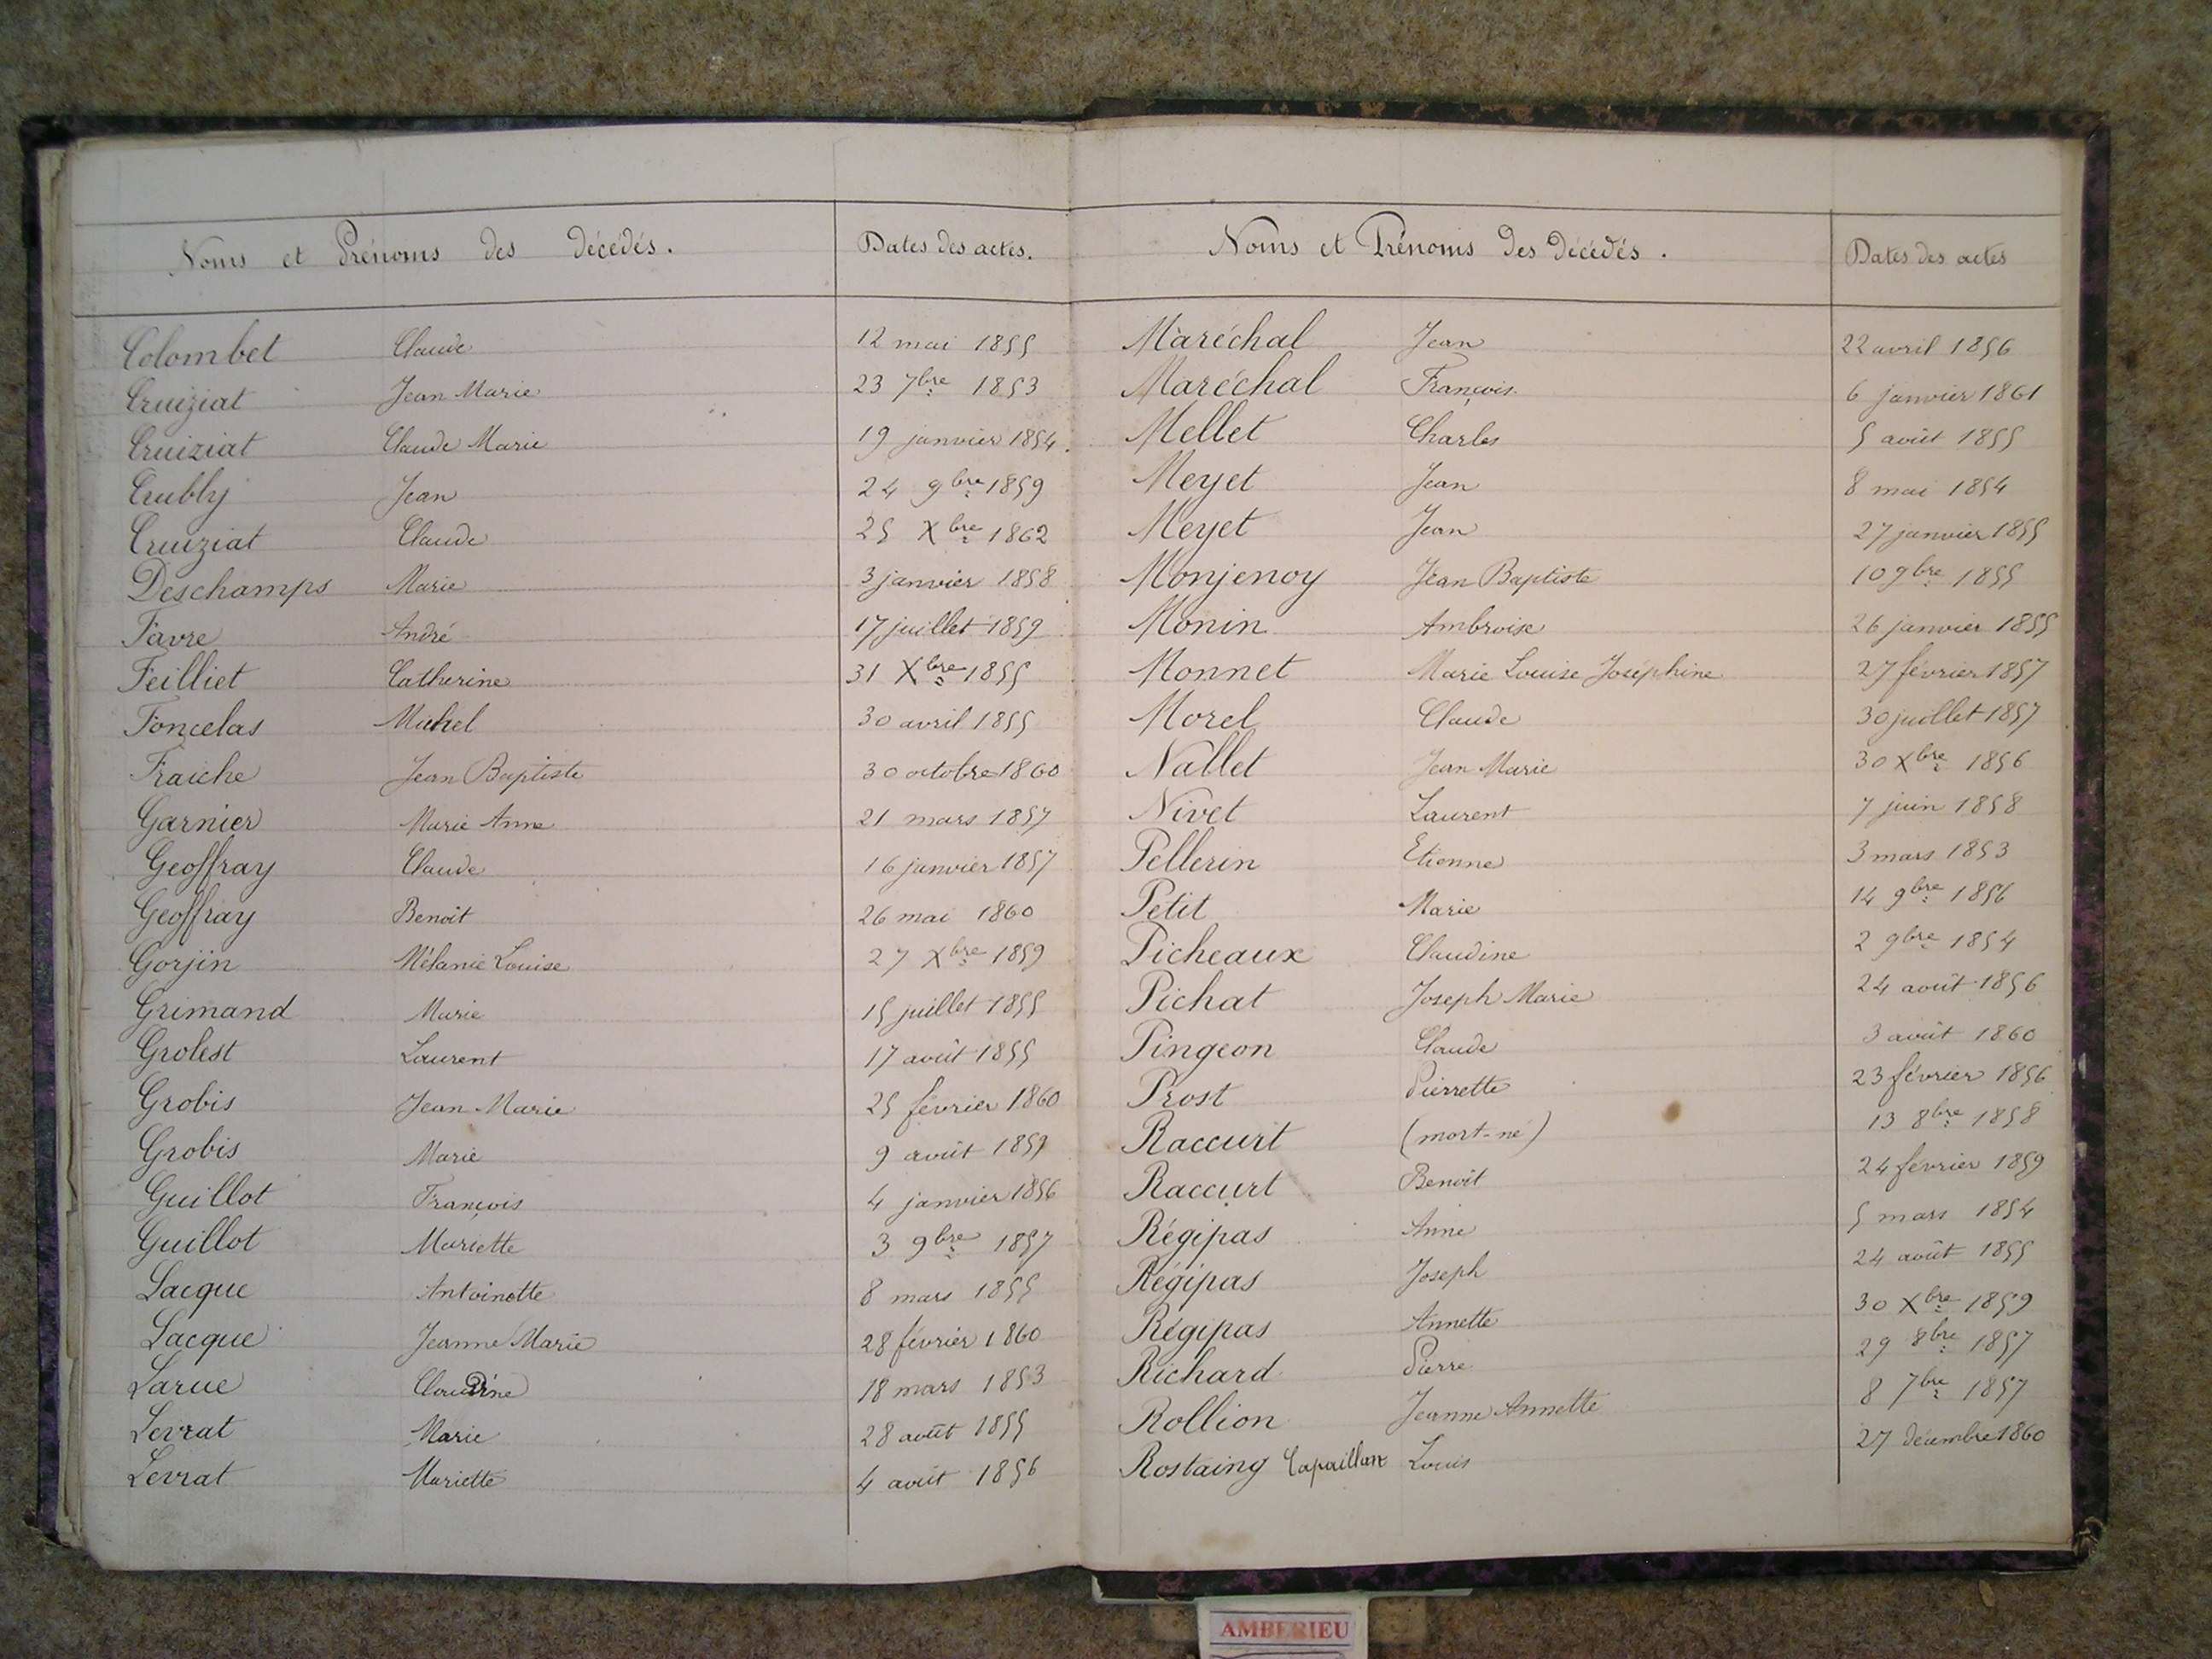 Noms et Prénoms des Décédés. Dates des actes.
Colombet Claude 12 mai 1855
Cruiziat Jean Marie 23 7bre 1853
Cruiziat Claude Marie 19 janvier 1854.
Crubly Jean 24 9bre 1859
Cruiziat Claude 25 Xbre 1862
Deschamps Marie 3 janvier 1858
Favre André 17 juillet 1859
Feilliet Catherine 31 Xbre 1855
Foncelas Michel 30 avril 1855
Fraiche Jean Baptiste 30 octobre 1860
Garnier Marie Anne 21 mars 1857
Geoffray Claude 16 janvier 1857
Geoffray Benoit 26 mai 1860
Gorjin Mélanie Louise 27 Xbre 1859
Grimand Marie 15 juillet 1855
Grolest Laurent 17 août 1855
Grobis Jean Marie 25 février 1860
Grobis Marie 9 août 1859
Guillot François 4 janvier 1856
Guillot Mariette 3 9bre 1857
Lacque Antoinette 8 mars 1855
Lacque Jeanne Marie 28 février 1860
Larue Claudine 18 mars 1853
Levrat Marie 28 août 1855
Levrat Mariette 4 août 1856
Noms et Prénoms des Décédés. Dates des actes
Maréchal Jean 22 avril 1856
Maréchal François. 6 janvier 1861
Mellet Charles 5 août 1855
Meyet Jean 8 mai 1854
Meyet Jean 27 janvier 1855
Monjenoy Jean Baptiste 10 9bre 1855
Monin Ambroise 26 janvier 1855
Monnet Marie Louise Joséphine 27 février 1857
Morel Claude 30 juillet 1857
Nallet Jean Marie 30 Xbre 1856
Nivet Laurent 7 juin 1858
Pellerin Etienne 3 mars 1853
Petit Marie 14 9bre 1856
Picheaux Claudine 2 9bre 1854
Pichat Joseph Marie 24 août 1856
Pingeon Claude 3 août 1860
Prost Pierrette 23 février 1856
Raccurt (mort-né) 13 8bre 1858
Raccurt Benoit 24 février 1859
Régipas Anne 5 mars 1854
Régipas Joseph 24 août 1855
Régipas Annette 30 Xbre 1859
Richard Pierre 29 8bre 1857
Rollion Jeanne Annette 8 7bre 1857
Rostaing Capaillan Louis 27 décembre 1860
AMBERIEU